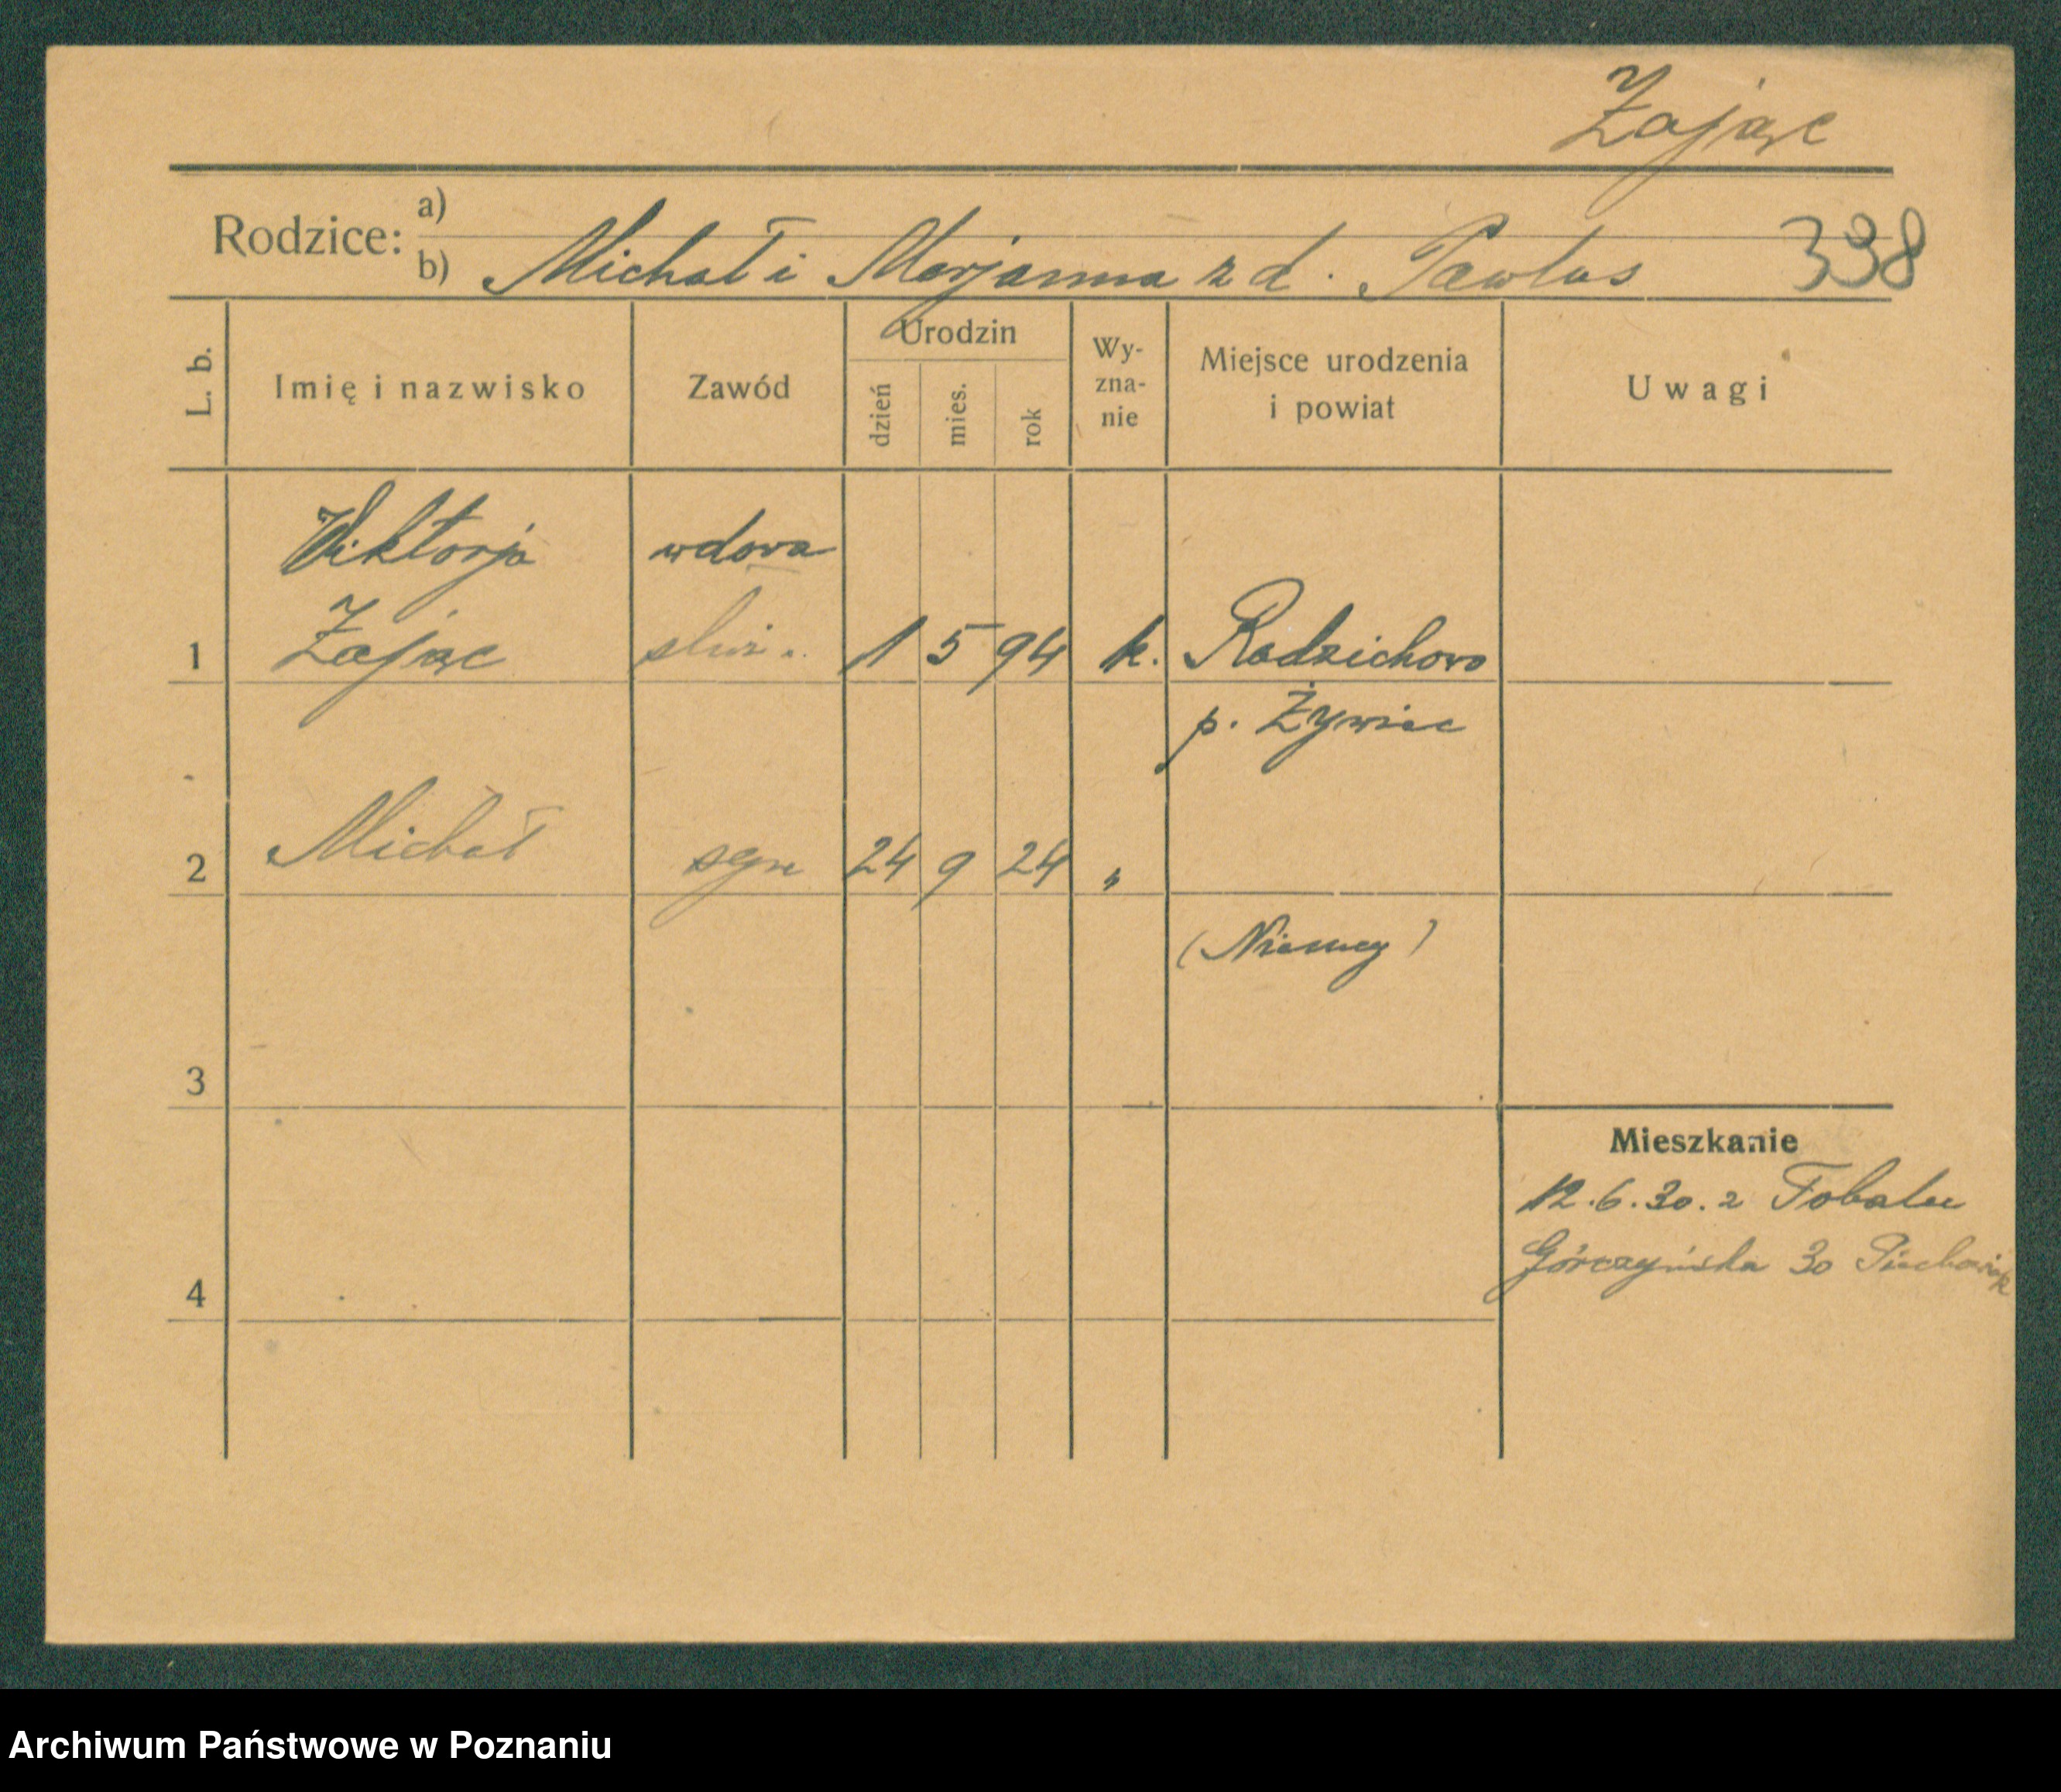 Zając
Rodzice:
a)
b) Michał i Marjanna z d. Pawlus
338
L. b.
Imię i nazwisko
Zawód
Urodzin
dzień
mies.
rok
Wy-
zna-
nie
Miejsce urodzenia
i powiat
Uwagi
Wiktorja wdowa
1 Zając służ. 1 5 94 k. Radzichowo
p. Żywiec
2 Michał syn 24 9 24 "
(Niemcy)
3
Mieszkanie
12.6.30. z
Górczyńska 30
4
Archiwum Państwowe w Poznaniu